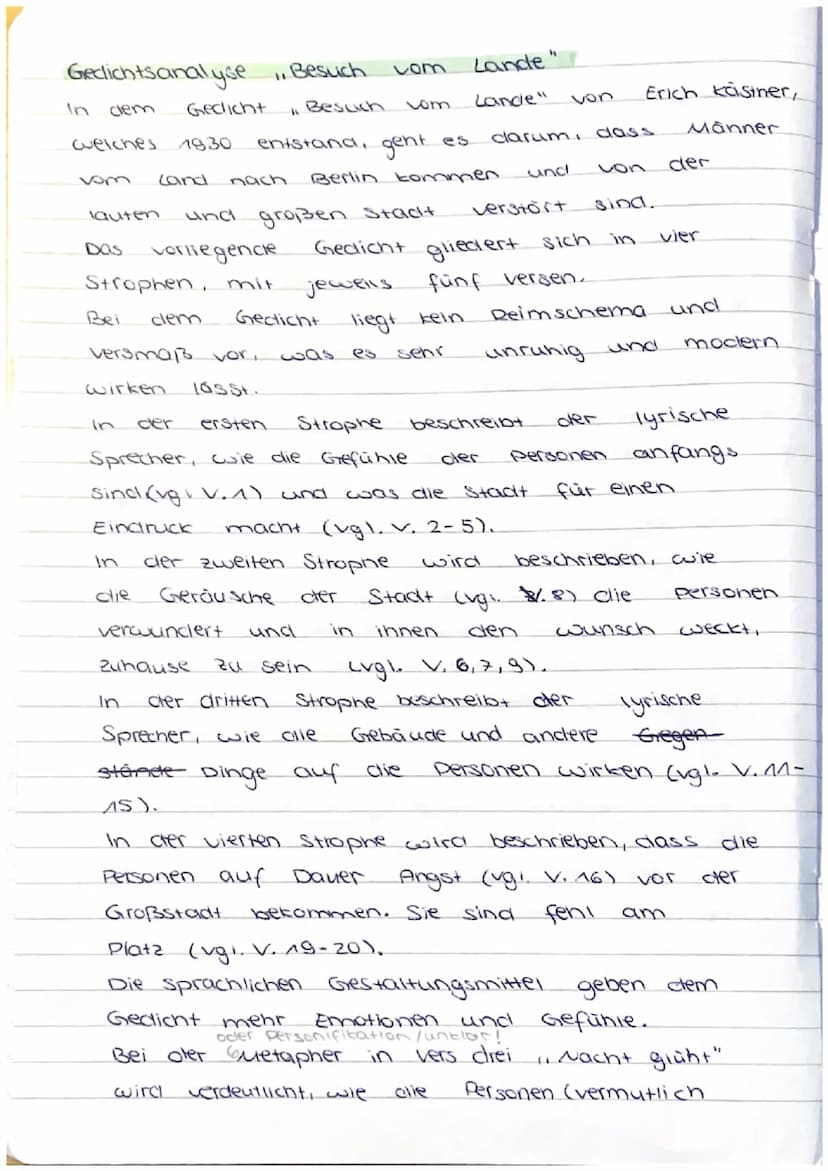 Gedichtsanalyse „Besuch vom Lande"
In dem Gedicht „Besuch vom Lande" von Erich Kästner,
welches 1930 entstand, geht es darum, dass Männer
vom Land nach Berlin kommen und von der
lauten und großen Stadt verstört sind.
Das vorliegende Gedicht gliedert sich in vier
Strophen, mit jeweils fünf versen.
Bei dem Gedicht liegt kein Reimschema und
Versmaß vor, was es sehr unruhig und modern
wirken lässt.
In der ersten Strophe beschreibt der lyrische
Sprecher, wie die Gefühle der Personen anfangs
sind (vgl. V. 1) und was die Stadt für einen
Eindruck macht (vgl. V. 2-5).
In der zweiten Strophe wird beschrieben, wie
die Geräusche der Stadt (vgl. V. 8) die Personen
verwundert und in ihnen den Wunsch weckt,
zuhause zu sein (vgl. V. 6, 7, 9).
In der dritten Strophe beschreibt der lyrische
Sprecher, wie die Gebäude und andere Gegen-
stände Dinge auf die Personen wirken (vgl. V. 11-
15).
In der vierten Strophe wird beschrieben, dass die
Personen auf Dauer Angst (vgl. V. 16) vor der
Großstadt bekommen. Sie sind fehl am
Platz (vgl. V. 19-20).
Die sprachlichen Gestaltungsmittel geben dem
Gedicht mehr Emotionen und Gefühle.
oder Personifikation/unklar!
Bei der Metapher in Vers drei „Nacht glüht"
wird verdeutlicht, wie die Personen (vermutlich